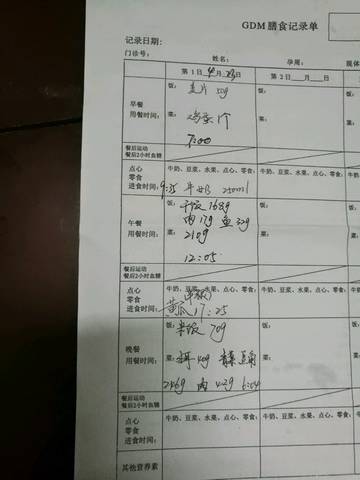 GDM膳食记录单
记录日期:
门诊号:
姓名:
孕周:
第1日 月 日
第2日 月 日
早餐
用餐时间:
饭: 麦片 50g
菜: 鸡蛋1个
7:00
饭:
菜:
餐后运动
餐后2小时血糖
点心
零食
进食时间:
牛奶、豆浆、水果、点心、零食:
9:35 牛奶 250ml
牛奶、豆浆、水果、点心、零食:
午餐
用餐时间:
饭: 干饭168g
肉17g 鱼32g
菜: 210g
12:05
饭:
菜:
餐后运动
餐后2小时血糖
点心
零食
进食时间:
牛奶、豆浆、水果、点心、零食:
黄瓜 17:25
牛奶、豆浆、水果、点心、零食:
晚餐
用餐时间:
饭: 米饭 70g
菜: 40g 青菜
246g 肉 42g
饭:
菜:
餐后运动
餐后2小时血糖
点心
零食
进食时间:
牛奶、豆浆、水果、点心、零食:
牛奶、豆浆、水果、点心、零食:
其他营养素